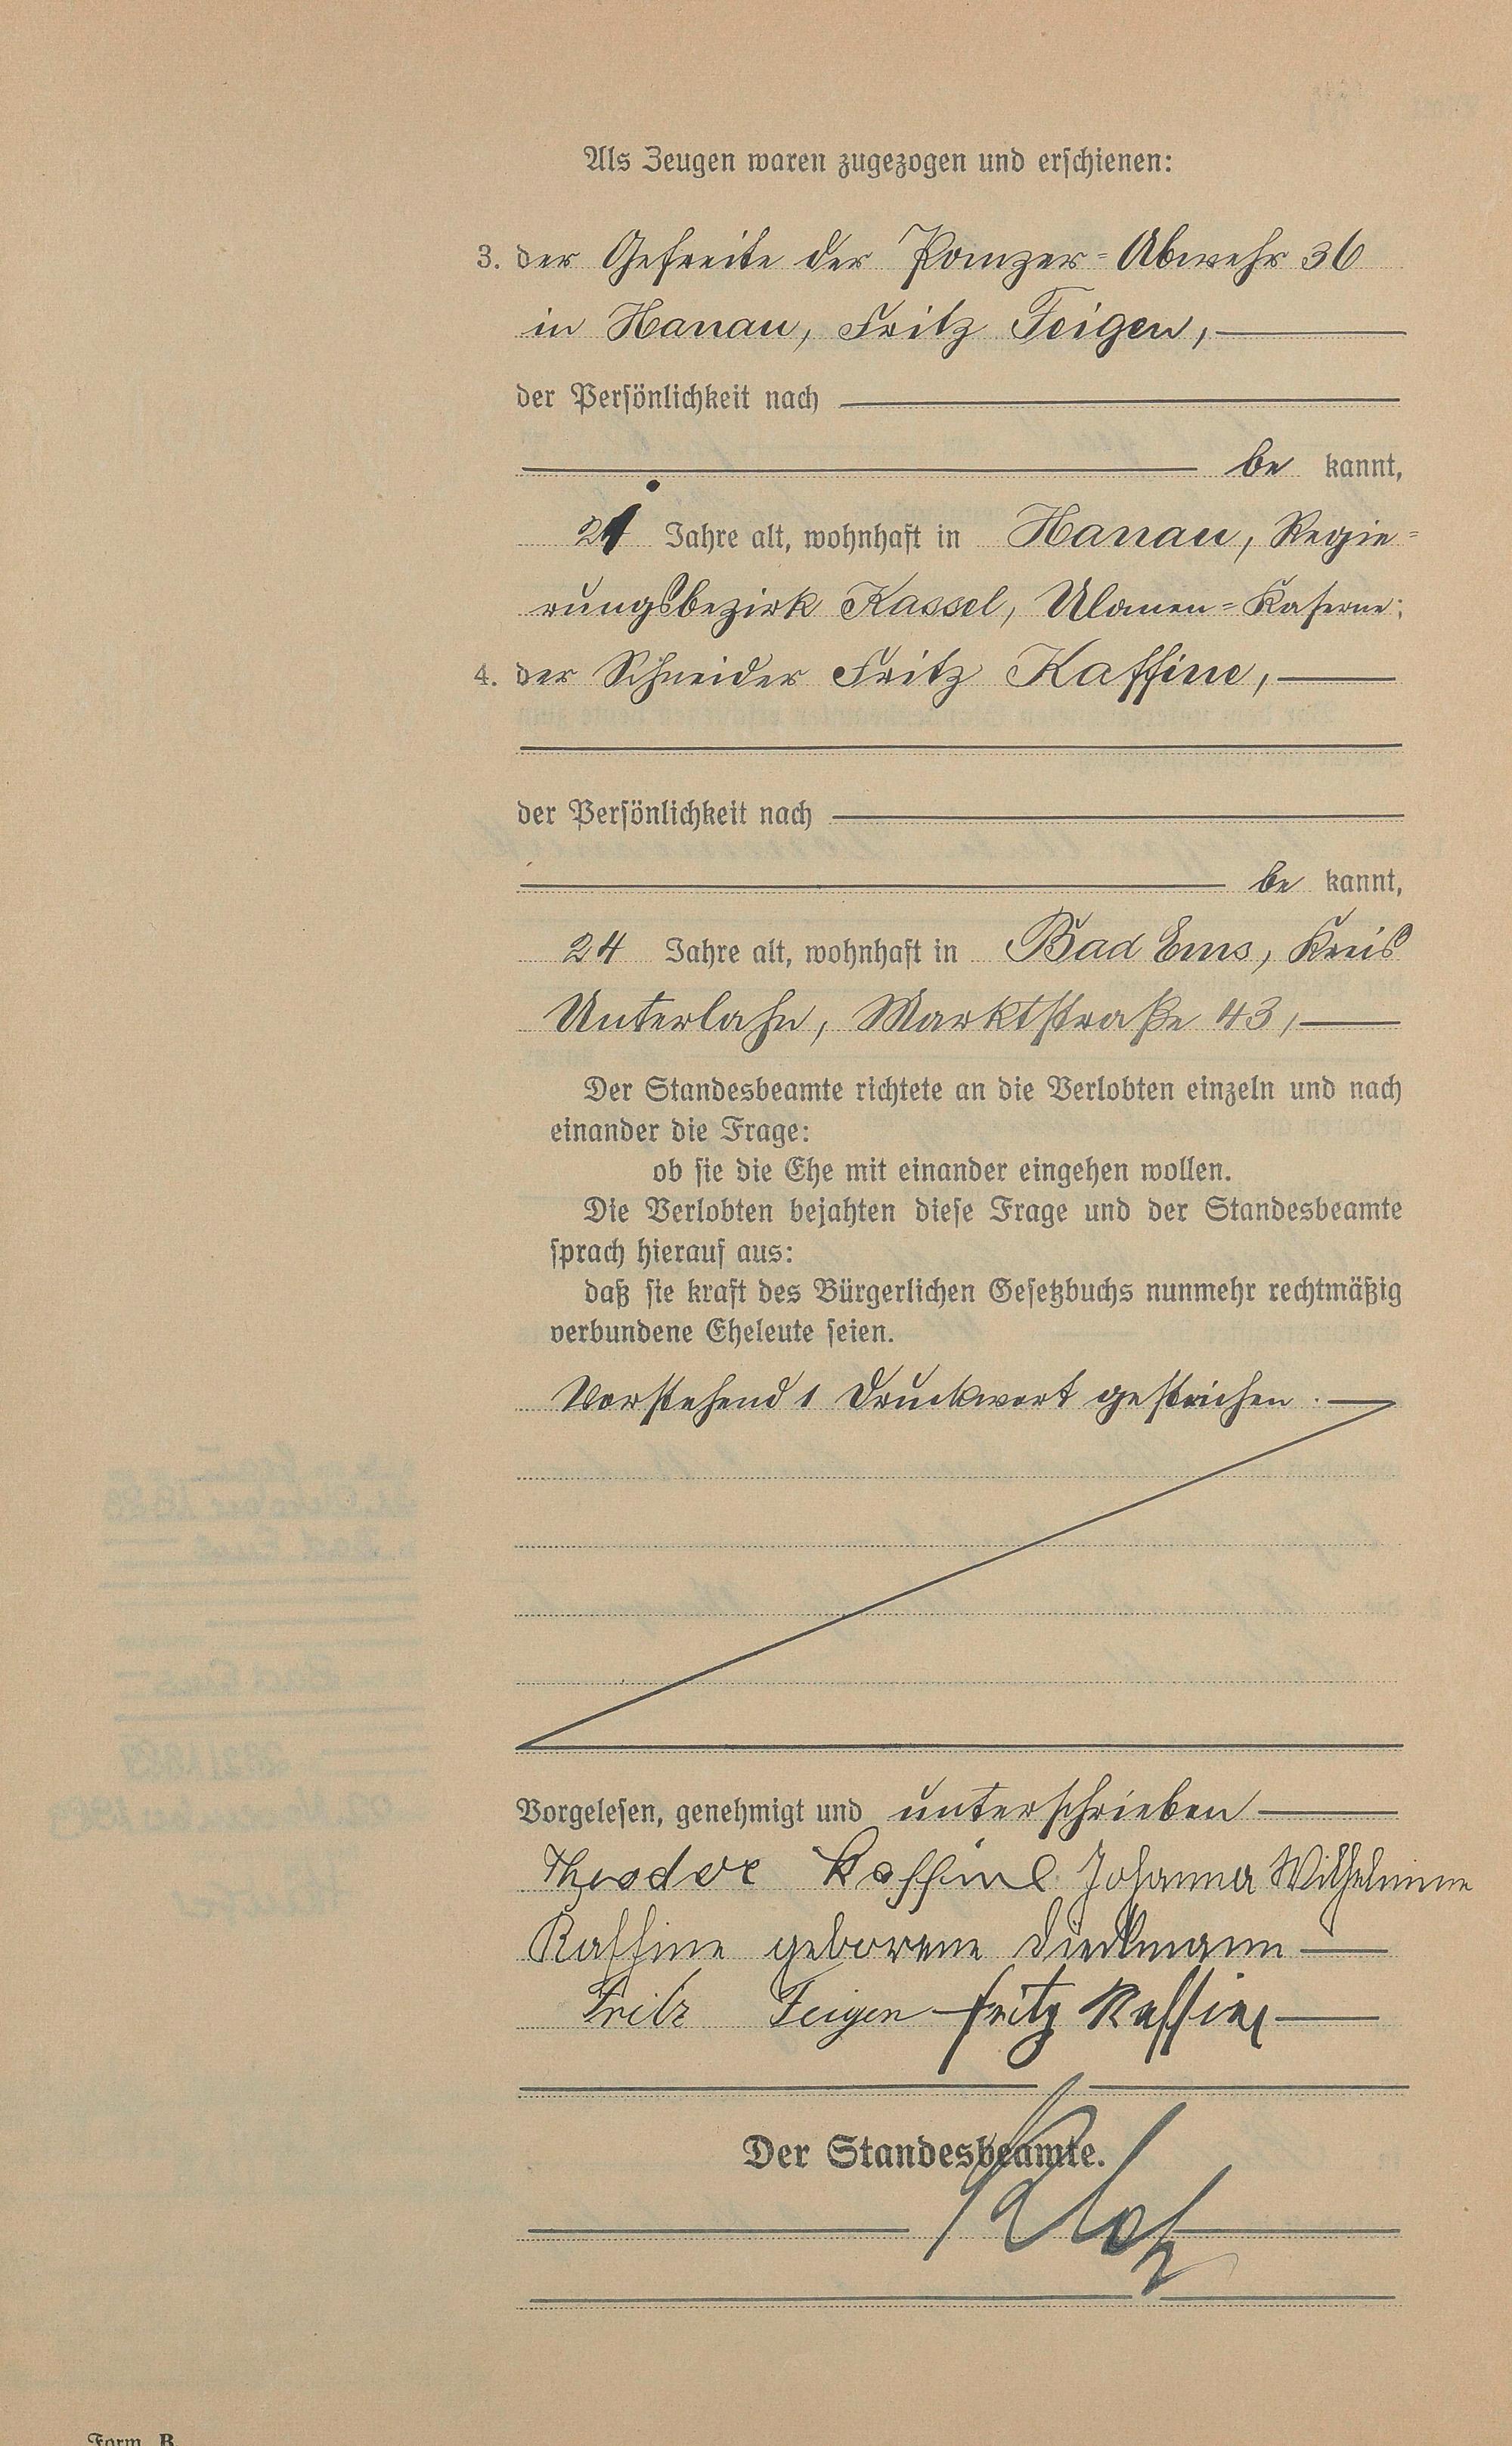 Als Zeugen waren zugezogen und erschienen:
3. der Gefreite der Panzer-Abwehr 36
in Hanau, Fritz Feigen,
der Persönlichkeit nach
be kannt,
21 Jahre alt, wohnhaft in Hanau, Regie=
rungsbezirk Kassel, Ulanen=Kaserne;
4. der Schneider Fritz Kaffine,
der Persönlichkeit nach
be kannt,
24 Jahre alt, wohnhaft in Bad Ems, Kreis
Unterlahn, Marktstraße 43,
Der Standesbeamte richtete an die Verlobten einzeln und nach
einander die Frage:
ob sie die Ehe mit einander eingehen wollen.
Die Verlobten bejahten diese Frage und der Standesbeamte
sprach hierauf aus:
daß sie kraft des Bürgerlichen Gesetzbuchs nunmehr rechtmäßig
verbundene Eheleute seien.
Vorstehend 1 Druckwort gestrichen.
Vorgelesen, genehmigt und unterschrieben
Theodor Kaffine Johanna Wilhelmine
Kaffine geborene Diedlmann
Fritz Feigen Fritz Kaffine
Der Standesbeamte.
Form. B.